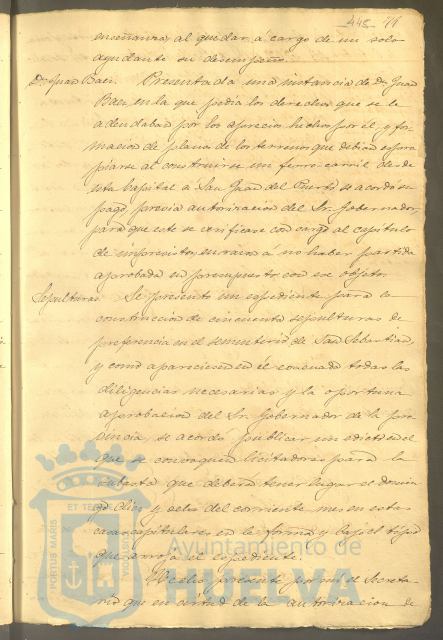 448 77
enseñanza, al quedar á cargo de un solo
ayudante su desempeño.
Dn. Juan Baen. Presentada una instancia de Dn. Juan
Baen en la que pedia los derechos que se le
adeudaban por los aprecios hechos por él, y for-
macion de planos de los terrenos que debian espro-
piarse al construirse un ferro-carril desde
esta Capital á San Juan del Puerto, se acordó su
pago, previa autorizacion del Sr. Gobernador,
para que este se verificase con cargo al capitulo
de imprevistos, en razon á no haber partida
aprobada en presupuesto con ese objeto.
Sepulturas. Se presentó un espediente para la
construccion de cincuenta sepulturas de
preferencia en el sementerio de San Sebastian,
y como apareciesen en él evacuado todas las
diligencias necesarias y la oportuna
aprobacion del Sr. Gobernador de la pro-
vincia, se acordó publicar un edicto en el
que se convoquen licitadores para la
subasta que deberá tener lugar el domin-
go diez y seis del corriente mes en estas
casas capitulares en la forma y bajo el tipo
que arroja el espediente.
Hícelo presente por mí el Secreta-
rio que en virtud de la autorizacion de
PORTUS MARIS ET TERRAE CUSTODIA
Ayuntamiento de
HUELVA